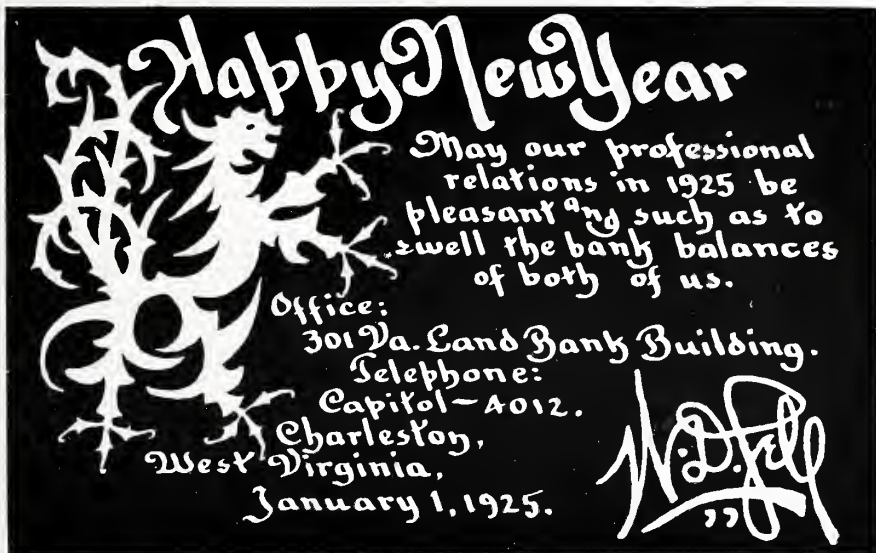 Happy New Year
May our professional
relations in 1925 be
pleasant and such as to
swell the bank balances
of both of us.
Office:
301 Va. Land Bank Building.
Telephone:
Capitol-4012.
Charleston,
West Virginia,
January 1, 1925.
W.D.